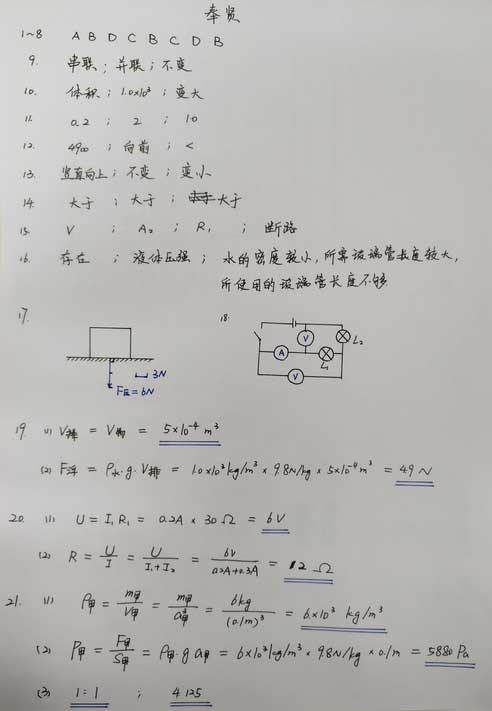 奉贤
1~8 A B D C B C D B
9. 串联；并联；不变
10. 体积；1.0×10³；变大
11. 0.2；2；10
12. 4900；向前；<
13. 竖直向上；不变；变小
14. 大于；大于；大于
15. V；A₂；R₁；断路
16. 存在；液体压强；水的密度较小，所需玻璃管长度较大，
所使用的玻璃管长度不够
17. 18.
3N
F压=6N
A V L₁ L₂
V
19. (1) V排 = V物 = 5×10⁻⁴ m³
(2) F浮 = ρ水·g·V排 = 1.0×10³kg/m³ × 9.8N/kg × 5×10⁻⁴ m³ = 4.9 N
20. (1) U = I₁R₁ = 0.2A × 30Ω = 6V
(2) R = U/I = U/(I₁+I₂) = 6V/(0.2A+0.3A) = 12 Ω
21. (1) ρ甲 = m甲/V甲 = m甲/a甲³ = 6kg/(0.1m)³ = 6×10³ kg/m³
(2) P甲 = F甲/S甲 = ρ甲·g a甲 = 6×10³kg/m³ × 9.8N/kg × 0.1m = 5880 Pa
(3) 1:1 ; 4.125